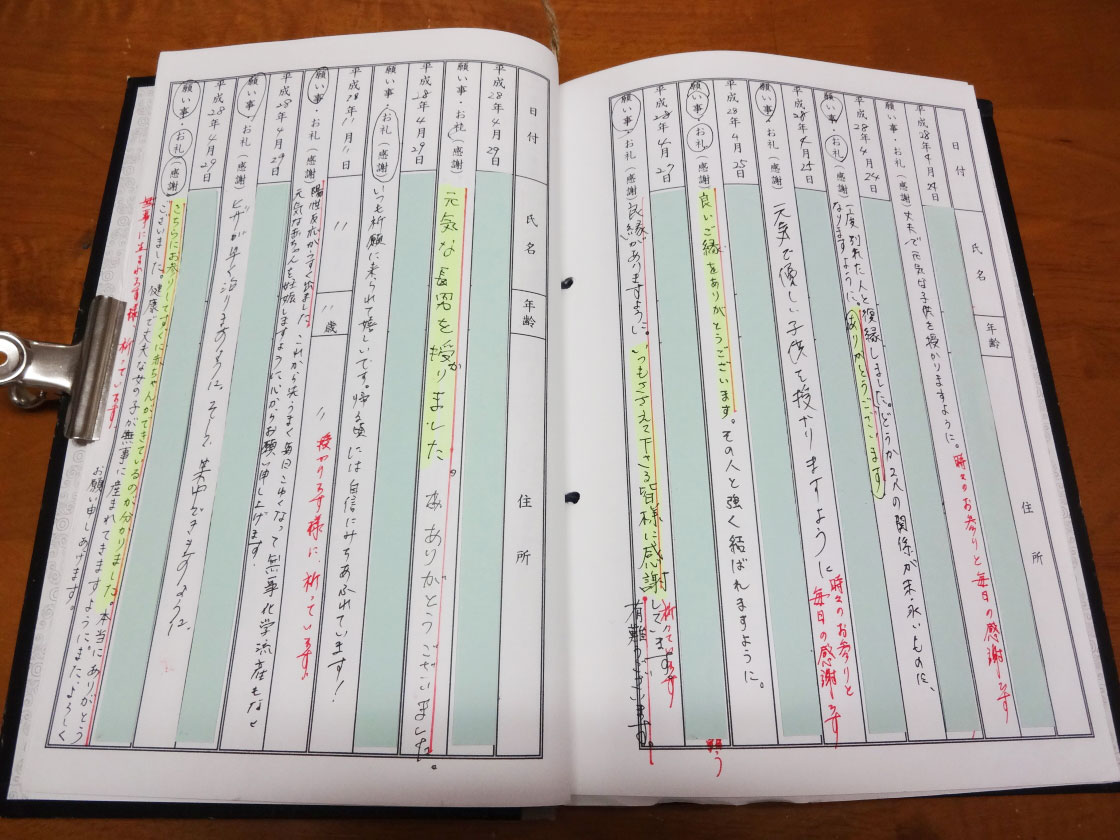 日付 氏名 年齢 住所
平成28年4月24日
願い事・お礼(感謝) 丈夫で元気な子供を授かりますように。
時々のお参りと毎日の感謝です
平成28年4月24日
願い事・お礼(感謝) 一度別れた人と復縁しました。どうか2人の関係が末永いものに、
なりますように、ありがとうございます
平成28年4月25日
時々のお参りと
毎日の感謝です
願い事・お礼(感謝) 元気で優しい子供を授かりますように
平成28年4月25日
願い事・お礼(感謝) 良いご縁をありがとうございます。その人と強く結ばれますように。
平成28年4月27日
祈っています
願い事・お礼(感謝) 良縁がありますように。いつもささえて下さる皆様に感謝しています。
有難うございます。
日付 氏名 年齢 住所
平成28年4月29日
願い事・お礼(感謝) 元気な長男を授かりました。ありがとうございました。
平成28年4月29日
願い事・お礼(感謝) いつも祈願に来られて嬉しいです。帰る頃には自信にみちあふれています!
平成28年11月11日 〃 〃歳 〃
授かります様に祈っています。
願い事・お礼(感謝) 陽性反応がうすく出ました。これから
元気な赤ちゃんを妊娠しますように心からお願い申し上げます。
平成28年4月29日
願い事・お礼(感謝) ヒザが早く治りますように そして 集中できますように。
平成28年4月29日
願い事・お礼(感謝) こちらにお参りしてすぐに赤ちゃんができているのが分かりました。本当にありがとう
ございました。健康で丈夫な女の子が無事に産まれてきますように。またよろしく
お願い申しあげます。
無事に生まれます様、祈っています